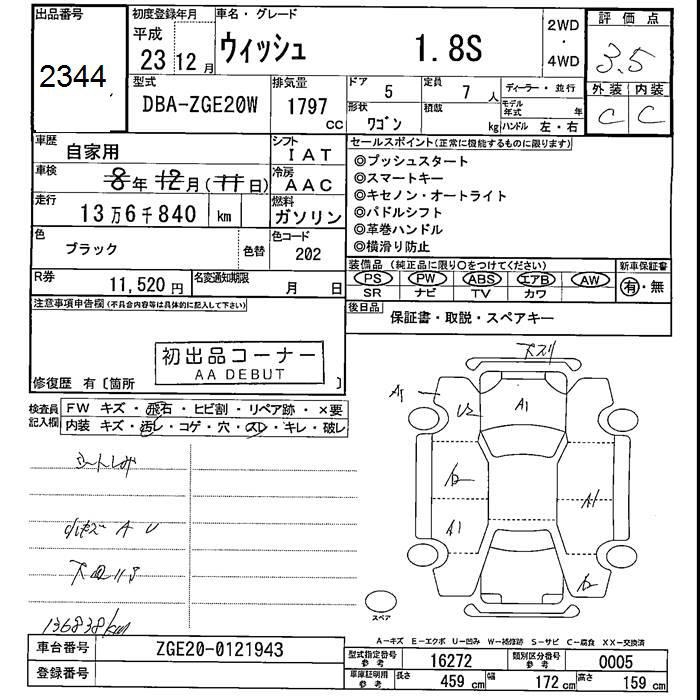 出品番号
2344
初度登録年月
平成
23 12月
車名・グレード
ウィッシュ 1.8S
2WD
・
4WD
評価点
3.5
外装 内装
C C
型式
DBA-ZGE20W
排気量
1797
CC
ドア 5
定員 7 人
形状
ワゴン
積載
kg
ディーラー・並行
モデル年式 年
ハンドル 左・右
車歴
自家用
シフト
IAT
車検
8年12月(11日)
冷房
AAC
走行
13万6千840 km
燃料
ガソリン
色
ブラック
色替
色コード
202
R券
11,520円
名変通知期限
月 日
セールスポイント(正常に機能するものに限ります)
◎プッシュスタート
◎スマートキー
◎キセノン・オートライト
◎パドルシフト
◎革巻ハンドル
◎横滑り防止
装備品(純正品に限り○をつけてください)
新車保証書
PS PW ABS エアB AW
SR ナビ TV カワ
有・無
後日品
保証書・取説・スペアキー
注意事項申告欄(不具合内容等は具体的に記入して下さい)
初出品コーナー
AA DEBUT
修復歴 有〔箇所 〕
検査員
記入欄
FW キズ・飛石・ヒビ割・リペア跡・×要
内装 キズ・汚レ・コゲ・穴・スレ・キレ・破レ
シートしみ
小キズ A U
136838km
A1
U2
A1
A2
A1
A1
A2
スペア
A-キズ E-エクボ U-凹み W-補修跡 S-サビ C-腐食 XX-交換済
車台番号
ZGE20-0121943
登録番号
型式指定番号
参考
16272
類別区分番号
参考
0005
車庫証明用
参考
長さ 459 cm
幅 172 cm
高さ 159 cm